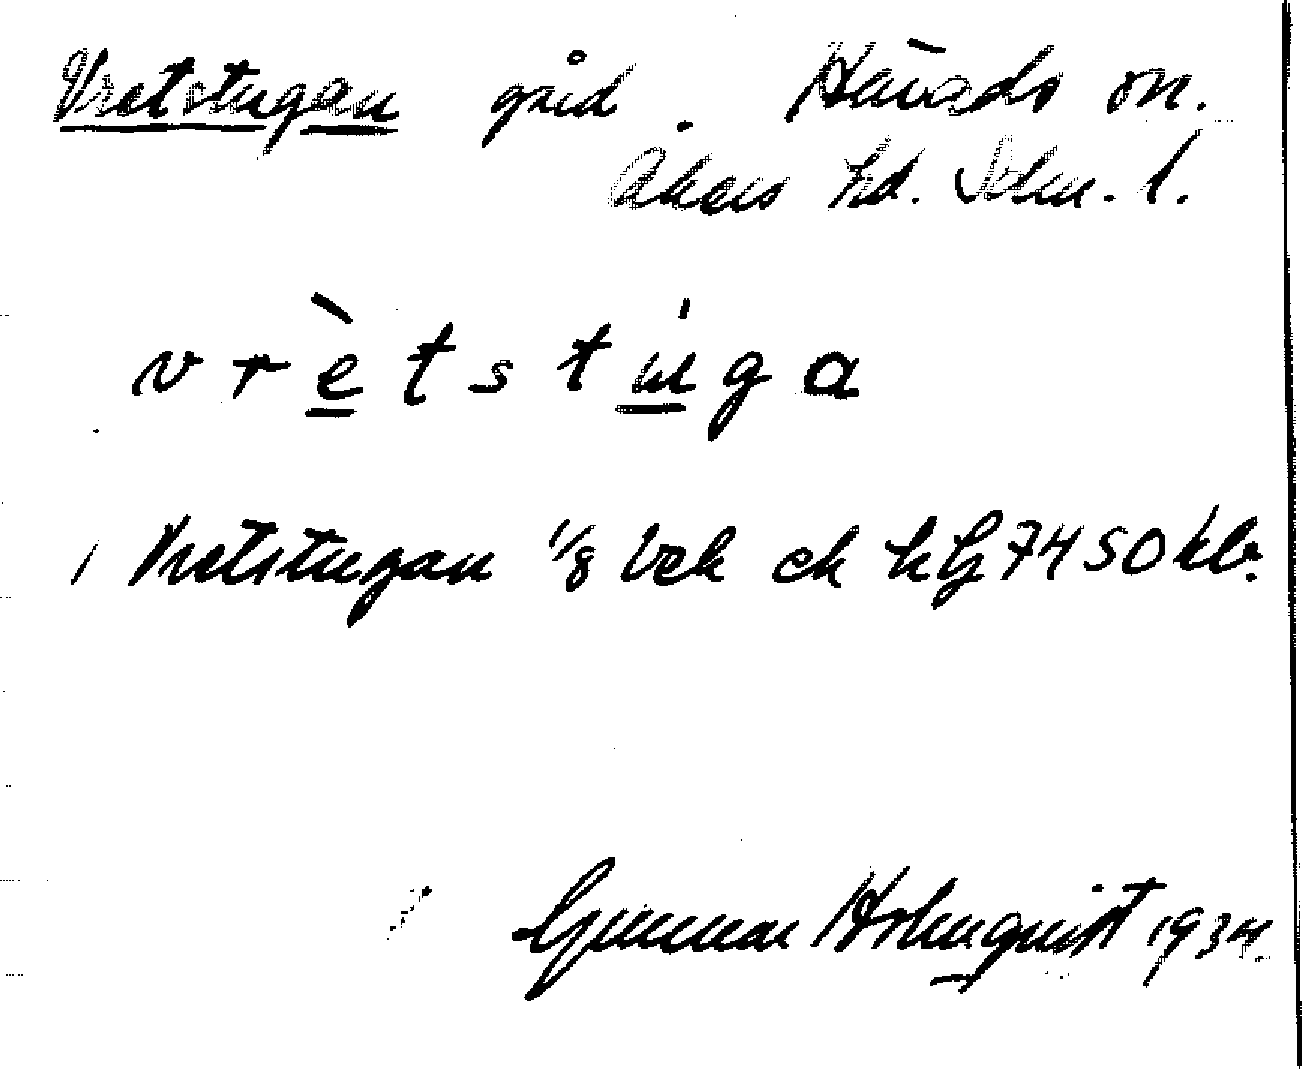 Vretstugan gård. Härads sn.
Åkers hd. Söm. l.
vrètstúga
Vretstugan 1/8 kbg 7450 kr.
Gunnar Holmquist 1934.